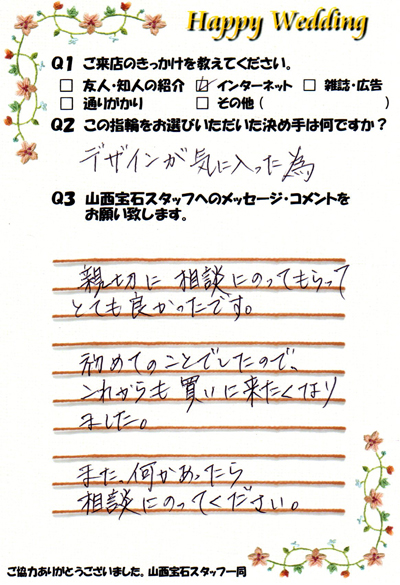 Happy Wedding
Q1 ご来店のきっかけを教えてください。
□ 友人・知人の紹介 ☑ インターネット □ 雑誌・広告
□ 通りがかり □ その他( )
Q2 この指輪をお選びいただいた決め手は何ですか?
デザインが気に入った為
Q3 山西宝石スタッフへのメッセージ・コメントを
お願い致します。
親切に相談にのってもらって
とても良かったです。
初めてのことでしたので、
これからも買いに来たくなり
ました。
また、何かあったら
相談にのってください。
ご協力ありがとうございました。山西宝石スタッフ一同